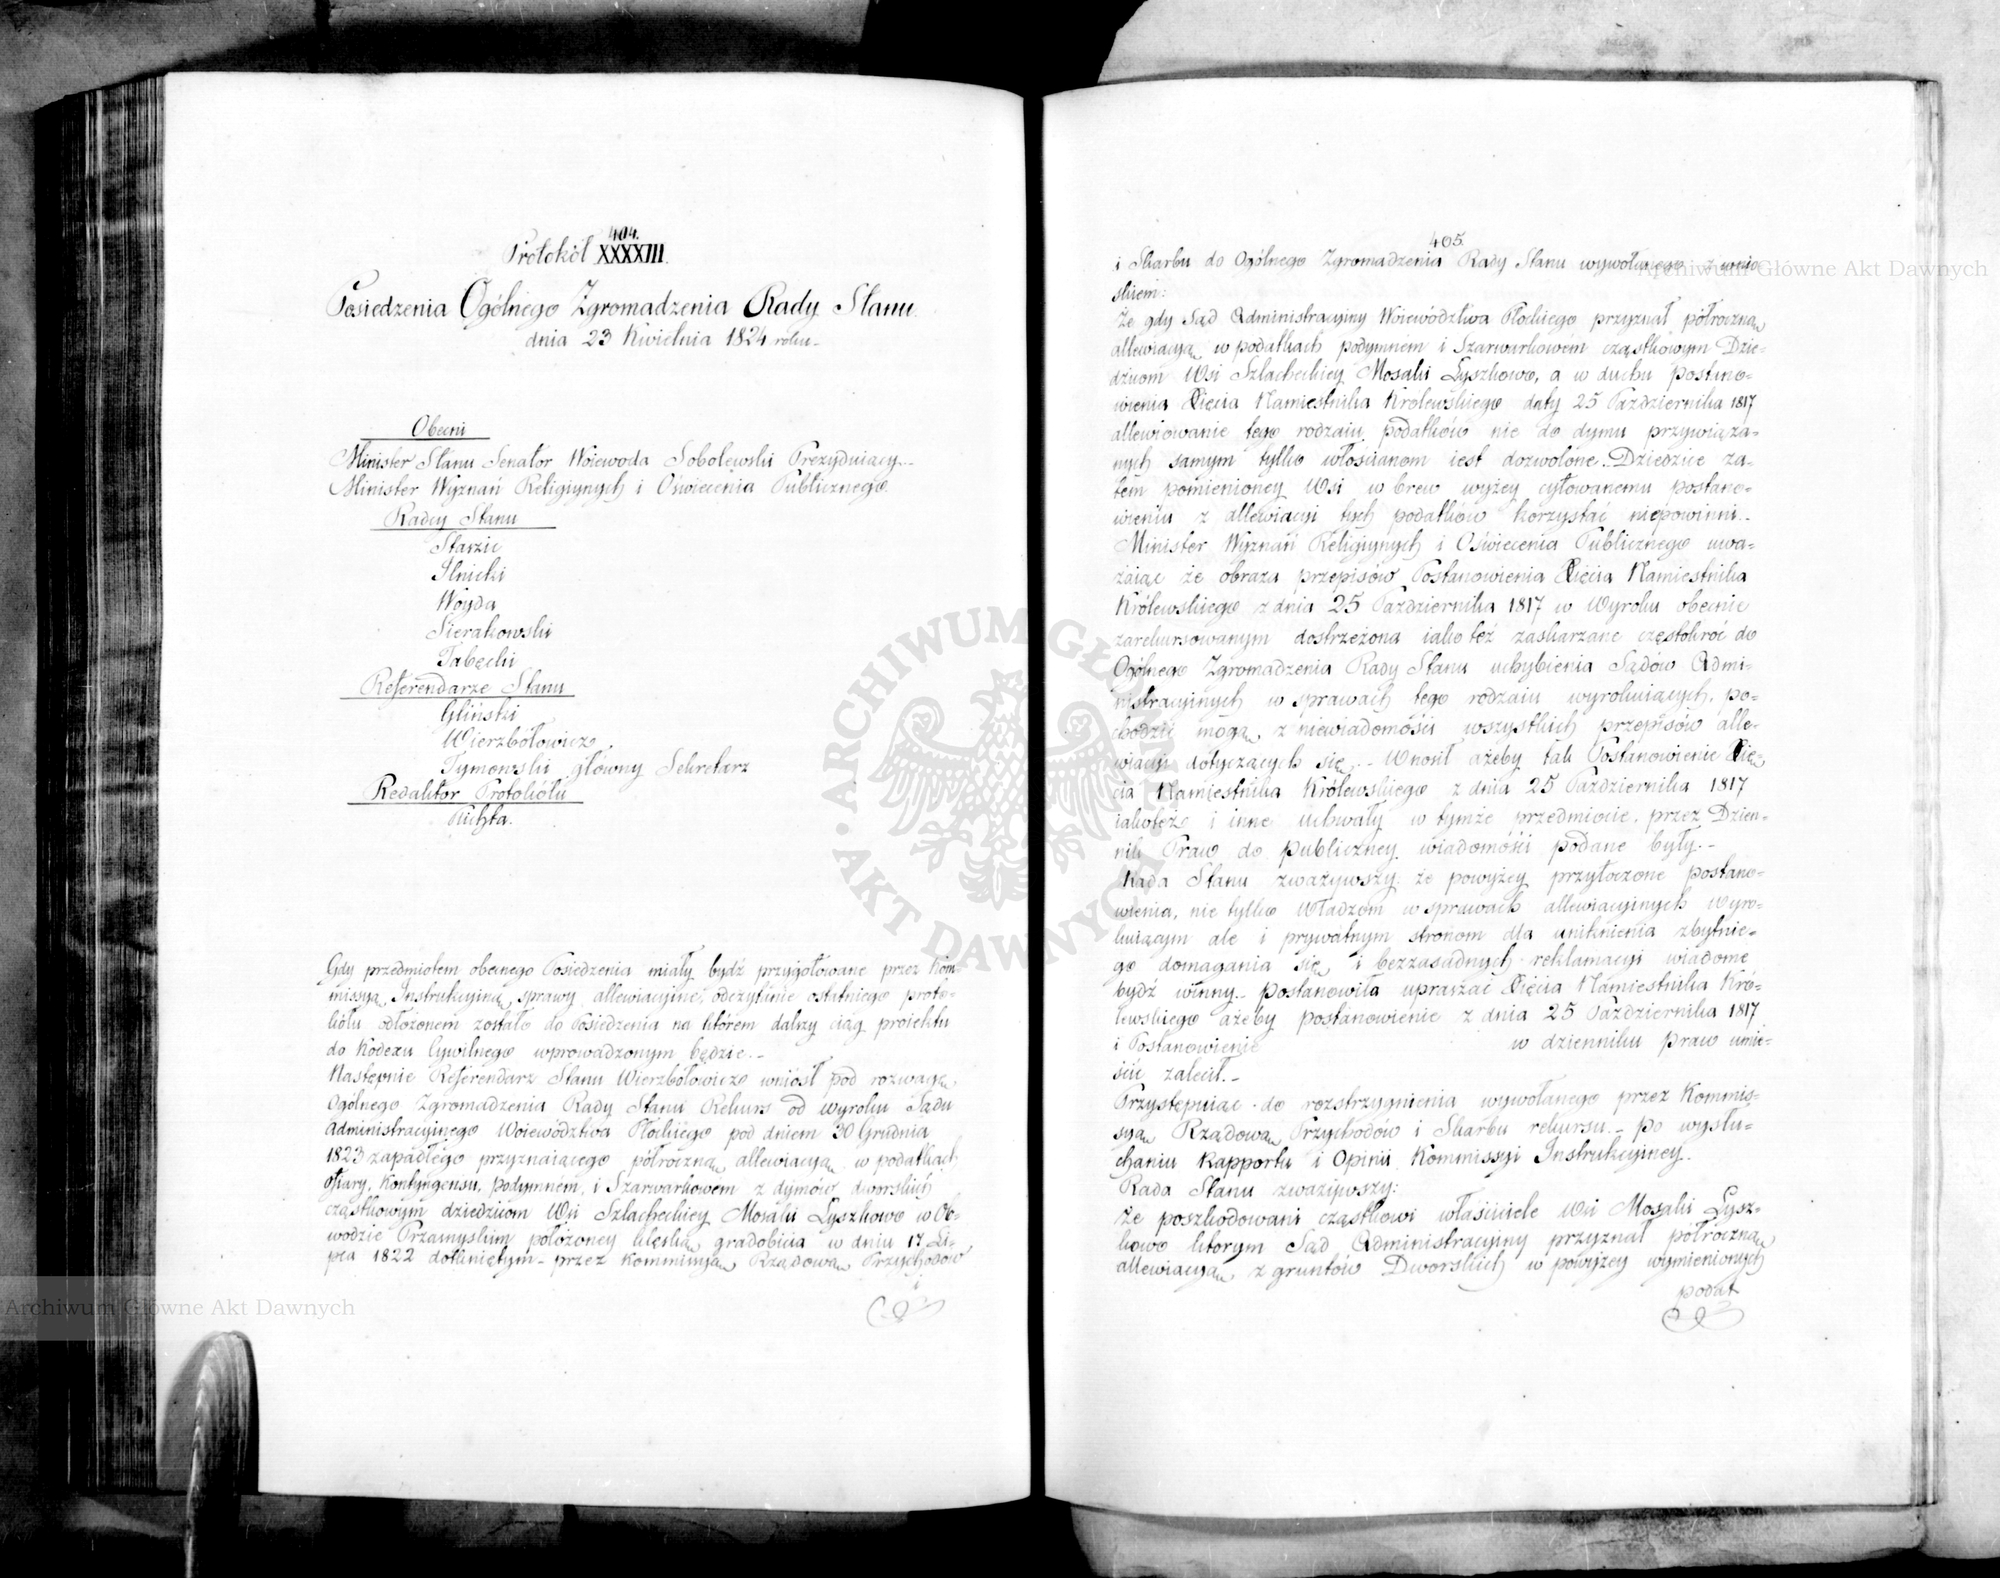 404.
Protokół XXXXIII.
Posiedzenia Ogólnego Zgromadzenia Rady Stanu
dnia 23 Kwietnia 1824 roku
Obecni
Minister Stanu Senator Woiewoda Sobolewski Prezyduiący
Minister Wyznań Religiynych i Oświecenia Publicznego
Radcy Stanu
Staszic
Ilnicki
Woyda
Sierakowski
Tabęcki
Referendarze Stanu
Gliński
Wierzbołowicz
Tymowski główny Sekretarz
Redaktor Protokółu
Puchta.
Gdy przedmiotem obecnego Posiedzenia miały bydź przygotowane przez Kom-
missyą Instrukcyiną sprawy allewiacyine, odczytanie ostatniego proto-
kółu odłożonem zostało do Posiedzenia na którem dalszy ciąg proiektu
do Kodexu Cywilnego wprowadzonym będzie.-
Następnie Referendarz Stanu Wierzbołowicz wniósł pod rozwagę
Ogólnego Zgromadzenia Rady Stanu Rekurs od wyroku Sądu
Administracyinego Woiewództwa Płockiego pod dniem 30 Grudnia
1823 zapadłego przyznaiącego półroczną allewiacyą w podatkach
ofiary, kontyngensu, podymnem, i Szarwarkowém z dymów dworskich
cząstkowym dziedzicom Wsi Szlacheckiey Mosaki Łyszkowo w Ob-
wodzie Przasnyskim położoney klęską gradobicia w dniu 17 Li-
pca 1822 dotkniętym - przez Kommissyą Rządową Przychodów
i
405.
i Skarbu do Ogólnego Zgromadzenia Rady Stanu wywołanego z wnio
skiem:
Że gdy Sąd Administracyiny Woiewództwa Płockiego przyznał półroczną
allewiacyą w podatkach podymnem i Szarwarkowém cząstkowym Dzie-
dzicom Wsi Szlacheckiey Mosaki Łyszkowo, a w duchu postano-
wienia Xięcia Namiestnika Królewskiego daty 25 Października 1817
allewiowanie tego rodzaiu podatków nie do dymu przywiąza-
nych samym tylko włościanom iest dozwolone. Dziedzice za-
tém pomienioney Wsi w brew wyżey cytowanemu postano-
wieniu z allewiacyi tych podatków korzystać niepowinni.-
Minister Wyznań Religiynych i Oświecenia Publicznego uwa-
żaiąc że obraza przepisów Postanowienia Xięcia Namiestnika
Królewskiego z dnia 25 Października 1817 w Wyroku obecnie
zarekursowanym dostrzeżona iako też zaskarzane częstokroć do
Ogólnego Zgromadzenia Rady Stanu uchybienia Sądów Admi-
nistracyinych w sprawach tego rodzaiu wyrokuiących, po-
chodzić mogą z niewiadomości wszystkich przepisów alle-
wiacyi dotyczących się. - Wnosił ażeby tak Postanowienie Xię-
cia Namiestnika Królewskiego z dnia 25 Października 1817
iakoteż i inne uchwały w tymże przedmiocie, przez Dzien-
nik Praw do publiczney wiadomości podane były.-
Rada Stanu zważywszy: że powyżey przytoczone postano-
wienia, nie tylko Władzom w sprawach allewiacyinych wyro-
kuiącym ale i prywatnym stronom dla uniknienia zbytnie-
go domagania się i bezzasadnych reklamacyi wiadome
bydź winny - postanowiła upraszać Xięcia Namiestnika Kró-
lewskiego ażeby postanowienie z dnia 25 Października 1817
i Postanowienie w dzienniku praw umie-
ścić zalecił.-
Przystępuiąc do rozstrzygnienia wywołanego przez Kommis-
syą Rządową Przychodów i Skarbu rekursu - po wysłu-
chaniu Rapportu i Opinii Kommissyi Instrukcyiney.
Rada Stanu zważywszy:
że poszkodowani cząstkowi właściciele Wsi Mosaki Łysz-
kowo którym Sąd Administracyiny przyznał półroczną
allewiacyą z gruntów Dworskich w powyżey wymienionych
podat
Archiwum Główne Akt Dawnych
Archiwum Główne Akt Dawnych
ARCHIWUM GŁÓWNE AKT DAWNYCH